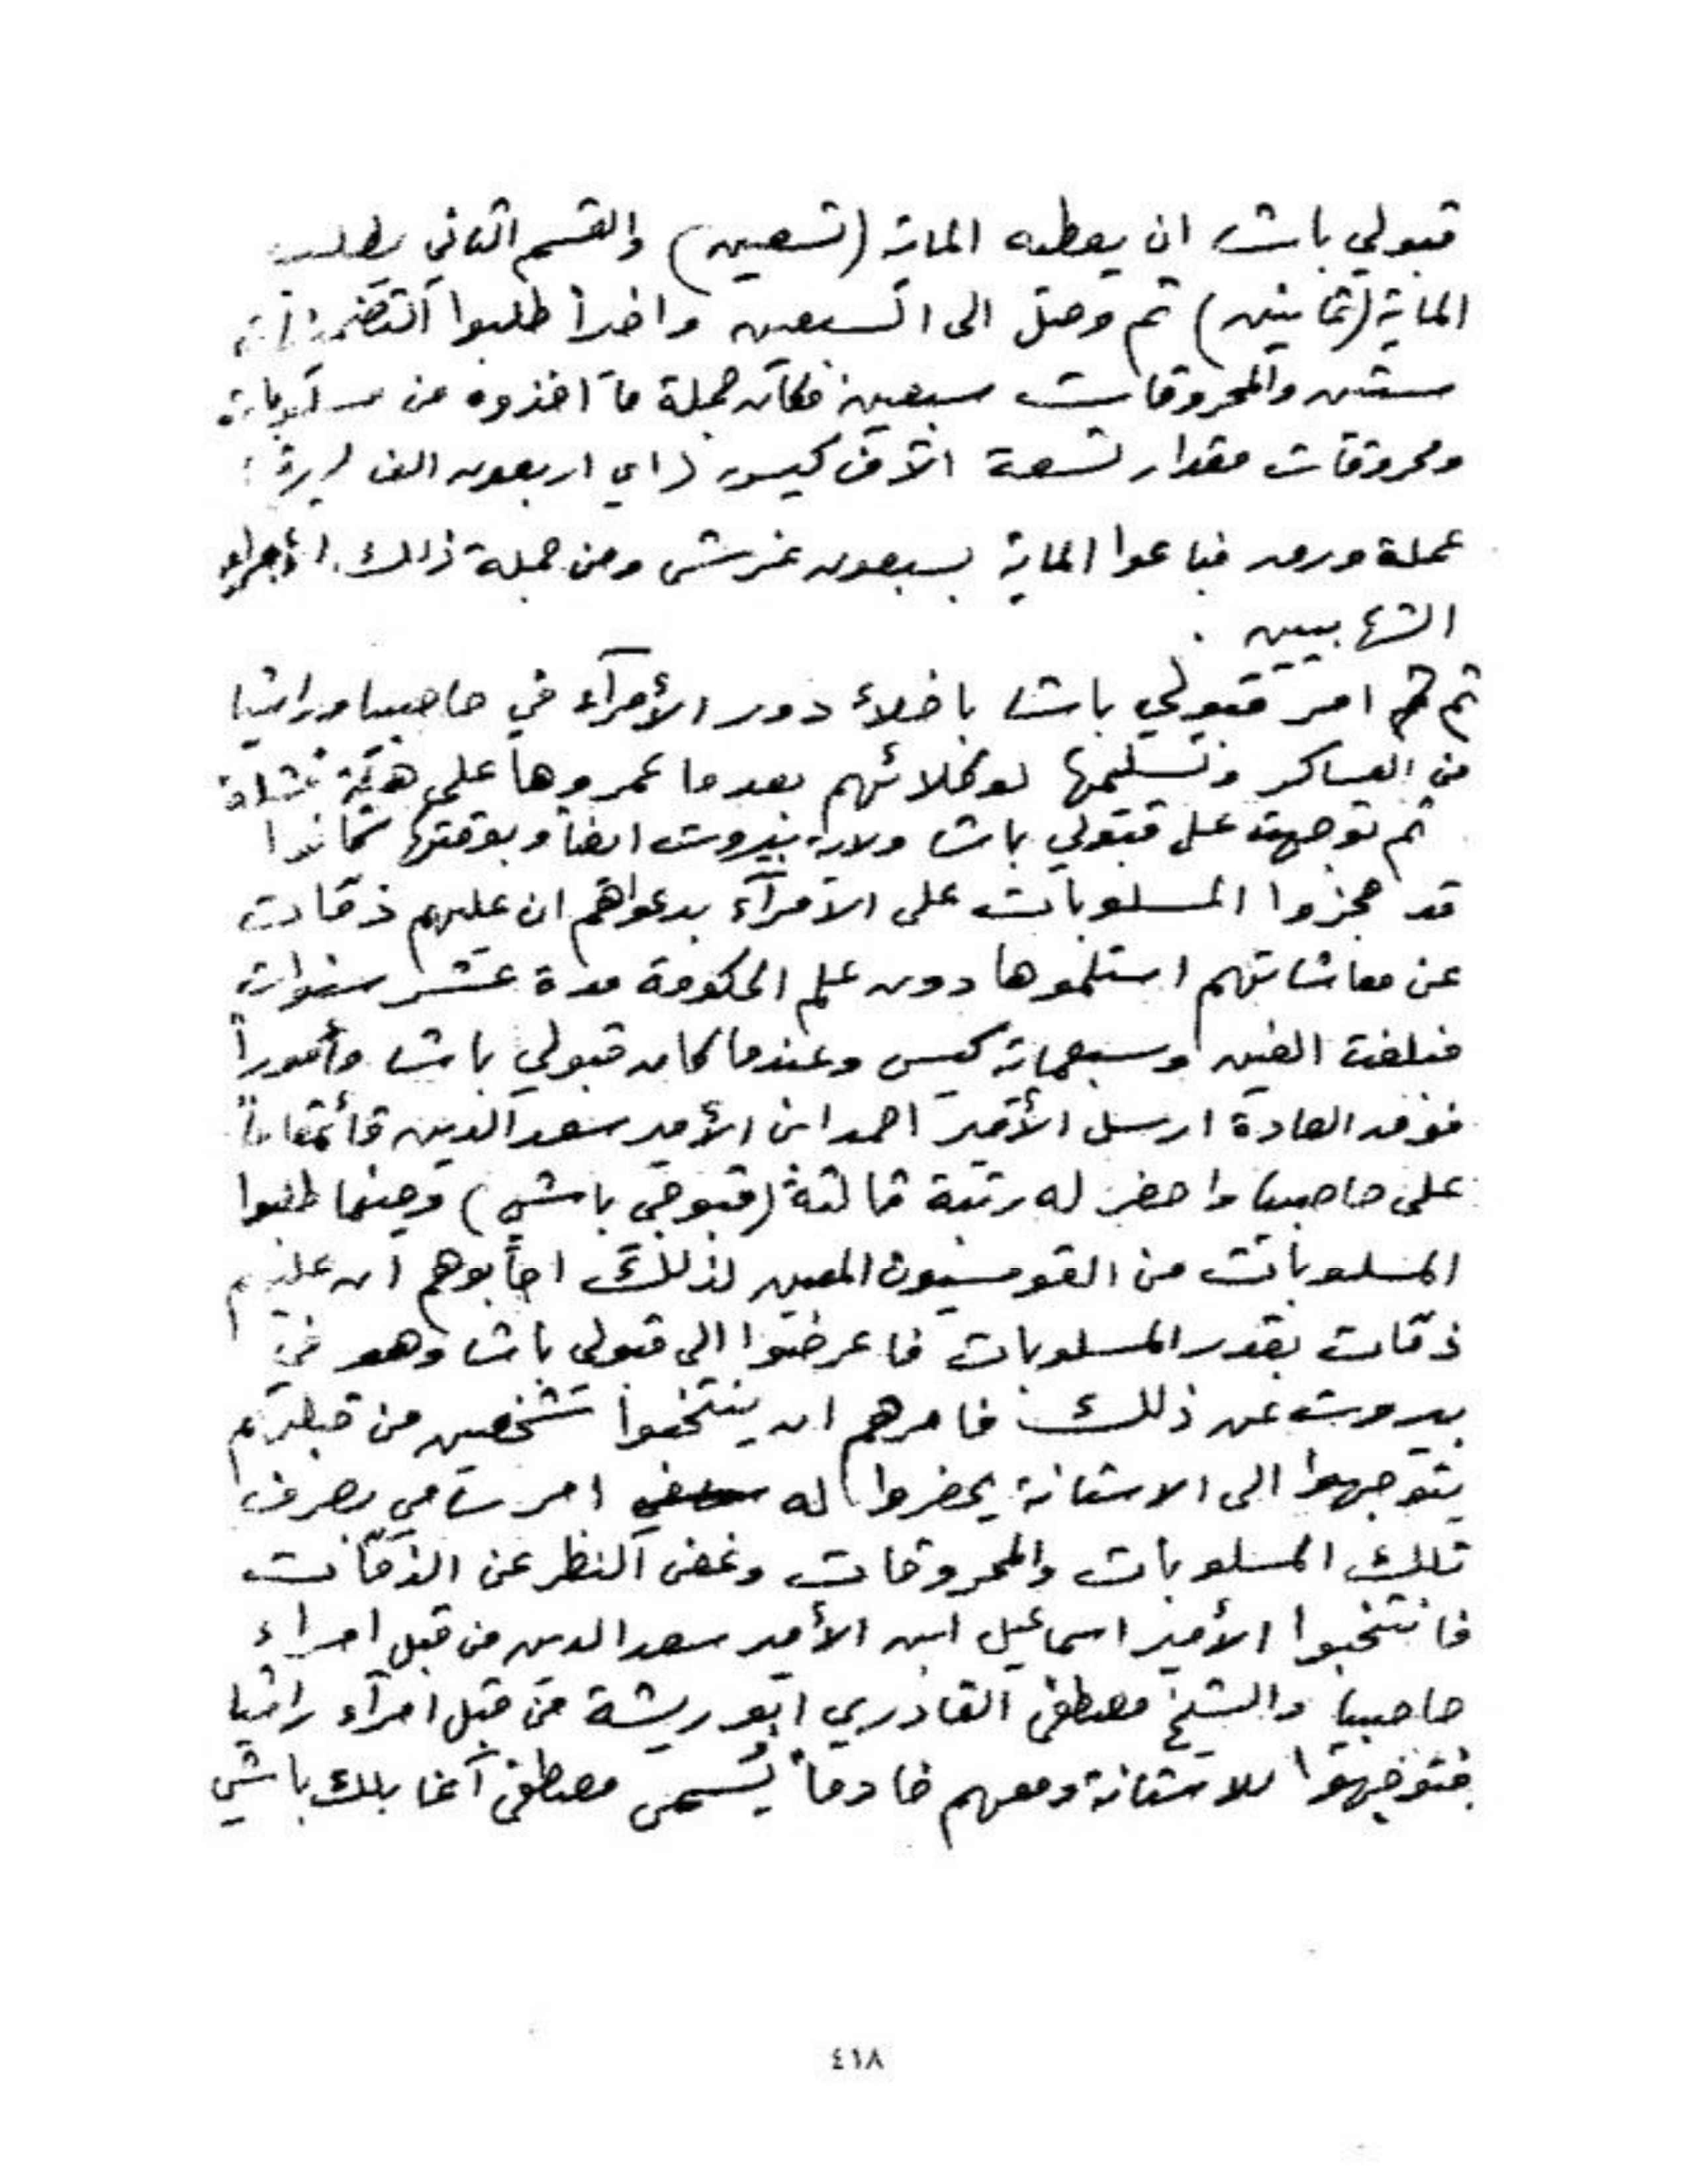 قبولي باشا ان يعطيه الماية (تسعين) والقسم الثاني يطلب
الماية (ثمانين) ثم وصل الى السبعين واخيراً طلبوا
ستين والمحروقات سبعين فكان جملة ما اخذوه من مسلوبات
ومحروقات مقدار تسعة الآف كيس (اي اربعون الف ليرة)
عملة ورق فباعوا الماية بسبعون غرش ومن جملة ذلك الأمراء
الشهابيين .
ثم امر قبولي باشا باخلاء دور الأمرآء في حاصبيا وراشيا
من العساكر وتسليمها لوكلائهم بعدما عمروها على هيئة قشلة
ثم توجهت على قبولي باشا ولاية بيروت ايضاً وبوقتها كانوا
قد حجزوا المسلوبات على الأمرآء بدعواهم ان عليهم ذمات
عن معاشاتهم استلموها دون علم الحكومة مدة عشر سنوات
فبلغت الفين وسبعماية كيس وعندما كان قبولي باشا مأموراً
فوق العادة ارسل الأمير احمد ابن الأمير سعد الدين قائمقاماً
على حاصبيا واحضر له رتبة ثالثة (قبوجي باشي) وحينما طلبوا
المسلوبات من القومسيون المعين لذلك اجابوهم ان عليهم
ذمات بقدر المسلوبات فاعرضوا الى قبولي باشا وهو في
بيروت عن ذلك فامرهم ان ينتخبوا شخصين من قبلهم
يتوجهوا الى الاستانة يحضروا له امر سامي بصرف
تلك المسلوبات والمحروقات وغض النظر عن الذمات
فانتخبوا الأمير اسماعيل ابن الأمير سعد الدين من قبل امراء
حاصبيا والشيخ مصطفى القادري ابو ريشة من قبل امرآء راشيا
فتوجهوا للاستانة ومعهم خادماً يُسمى مصطفى آغا بلك باشي
٤١٨